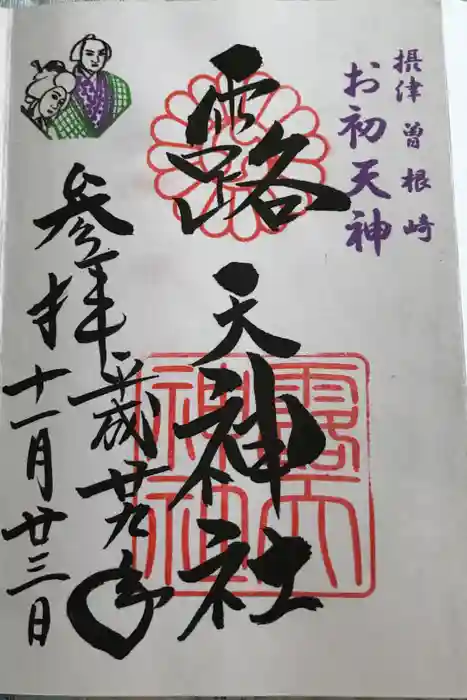 摂津 曽根崎
お初天神
露天神社
露天神社
参拝
平成廿九年
十一月廿三日